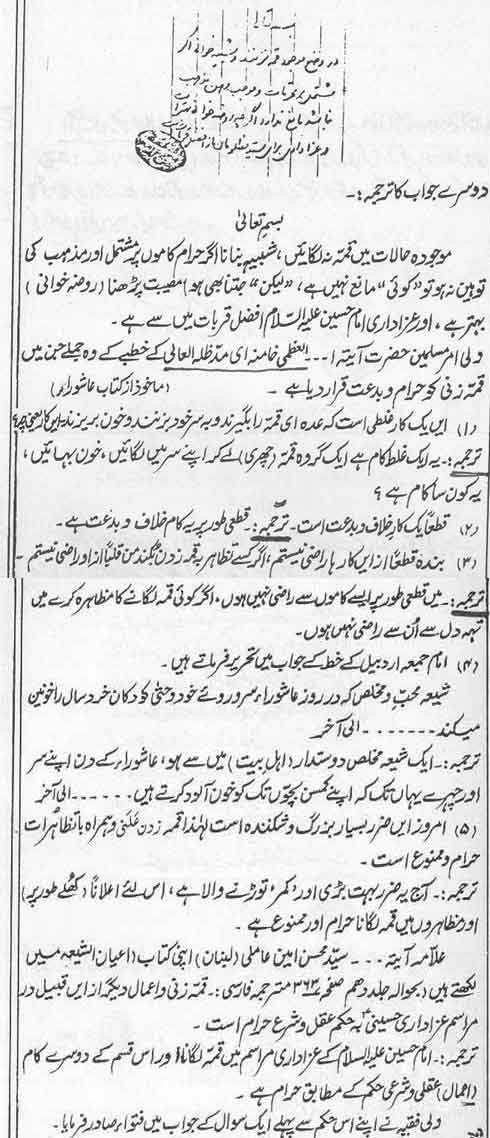 در وضع موجود قمه نزنند و شبیه خوانی اگر
مشتمل بر محرمات و موجب وهن مذهب
نباشد مانع ندارد
دوسرے جواب کا ترجمہ:۔
بسمہ تعالیٰ
موجودہ حالات میں قمہ نہ لگائیں، شبیہیں بنانا اگر حرام کاموں پر مشتمل اور مذہب کی
توہین نہ ہو تو "کوئی" مانع نہیں ہے، "لیکن" جتنا بھی ہو) مصیبت پڑھنا (روضہ خوانی)
بہتر ہے، اور عزاداری امام حسین علیہ السلام افضل قربات میں سے ہے۔
ولی امر مسلمین حضرت آیتہ ا۔۔۔ العظمیٰ خامنہ ای مدظلہ العالی کے خطبے کے وہ جملے جن میں
قمہ زنی کو حرام و بدعت قرار دیا ہے۔ (ماخوذ از کتاب عاشوراء)
(۱) ایں یک کار غلطی است کہ عدہ ای قمہ را بگیرند و بہ سر خود بزنند و خون بریزند، ایں کار یعنی چہ؟
ترجمہ:۔ یہ ایک غلط کام ہے ایک گروہ قمہ (چھری) لے کر اپنے سر میں لگائیں، خون بہائیں،
یہ کون سا کام ہے؟
(۲) قطعاً یک کار خلاف و بدعت است۔ ترجمہ:۔ قطعی طور پر یہ کام خلاف و بدعت ہے۔
(۳) بندہ قطعاً از ایں کارہا راضی نیستم، اگر کسے تظاہر بہ قمہ زدن بکند من قلباً از او راضی نیستم۔
ترجمہ:۔ میں قطعی طور پر ایسے کاموں سے راضی نہیں ہوں۔ اگر کوئی قمہ لگانے کا مظاہرہ کرے میں
تہہ دل سے اُن سے راضی نہیں ہوں۔
(۴) امام جمعہ اردبیل کے خط کے جواب میں تحریر فرماتے ہیں۔
شیعہ محب و مخلص کہ در روز عاشوراء سر و روئے خود و حتیٰ کودکان خردسال را خونین
میکند ۔۔۔۔۔۔۔ الی آخر
ترجمہ:۔ ایک شیعہ مخلص دوستدار (اہل بیت) میں سے ہو، عاشوراء کے دن اپنے سر
اور چہرے یہاں تک کہ اپنے کمسن بچوں تک کو خون آلود کرتے ہیں۔۔۔۔۔۔ الی آخر
(۵) امروز ایں ضرر بسیار بزرگ و شکنندہ است لہٰذا قمہ زدن علنی و ہمراہ با تظاہرات
حرام و ممنوع است۔
ترجمہ:۔ آج یہ ضرر بہت بڑی اور "کمر" توڑنے والا ہے، اس لئے اعلاناً (کھلے طور پر)
اور مظاہروں میں قمہ لگانا حرام اور ممنوع ہے۔
علامہ آیتہ ۔۔۔ سید محسن امین عاملی (لبنان) اپنی کتاب (اعیان الشیعہ میں
لکھتے ہیں (بحوالہ جلد دہم صفحہ ۳۶۳ مترجمہ فارسی:۔ قمہ زنی و اعمال دیگر از ایں قبیل در
مراسم عزاداری حسینیؑ بہ حکم عقل و شرع حرام است۔
ترجمہ:۔ امام حسین علیہ السلام کے عزاداری مراسم میں قمہ لگانا اور اس قسم کے دوسرے کام
(اعمال) عقلی و شرعی حکم کے مطابق حرام ہے۔
ولی فقیہ نے اپنے اس حکم سے پہلے ایک سوال کے جواب میں فتواء صادر فرمایا۔